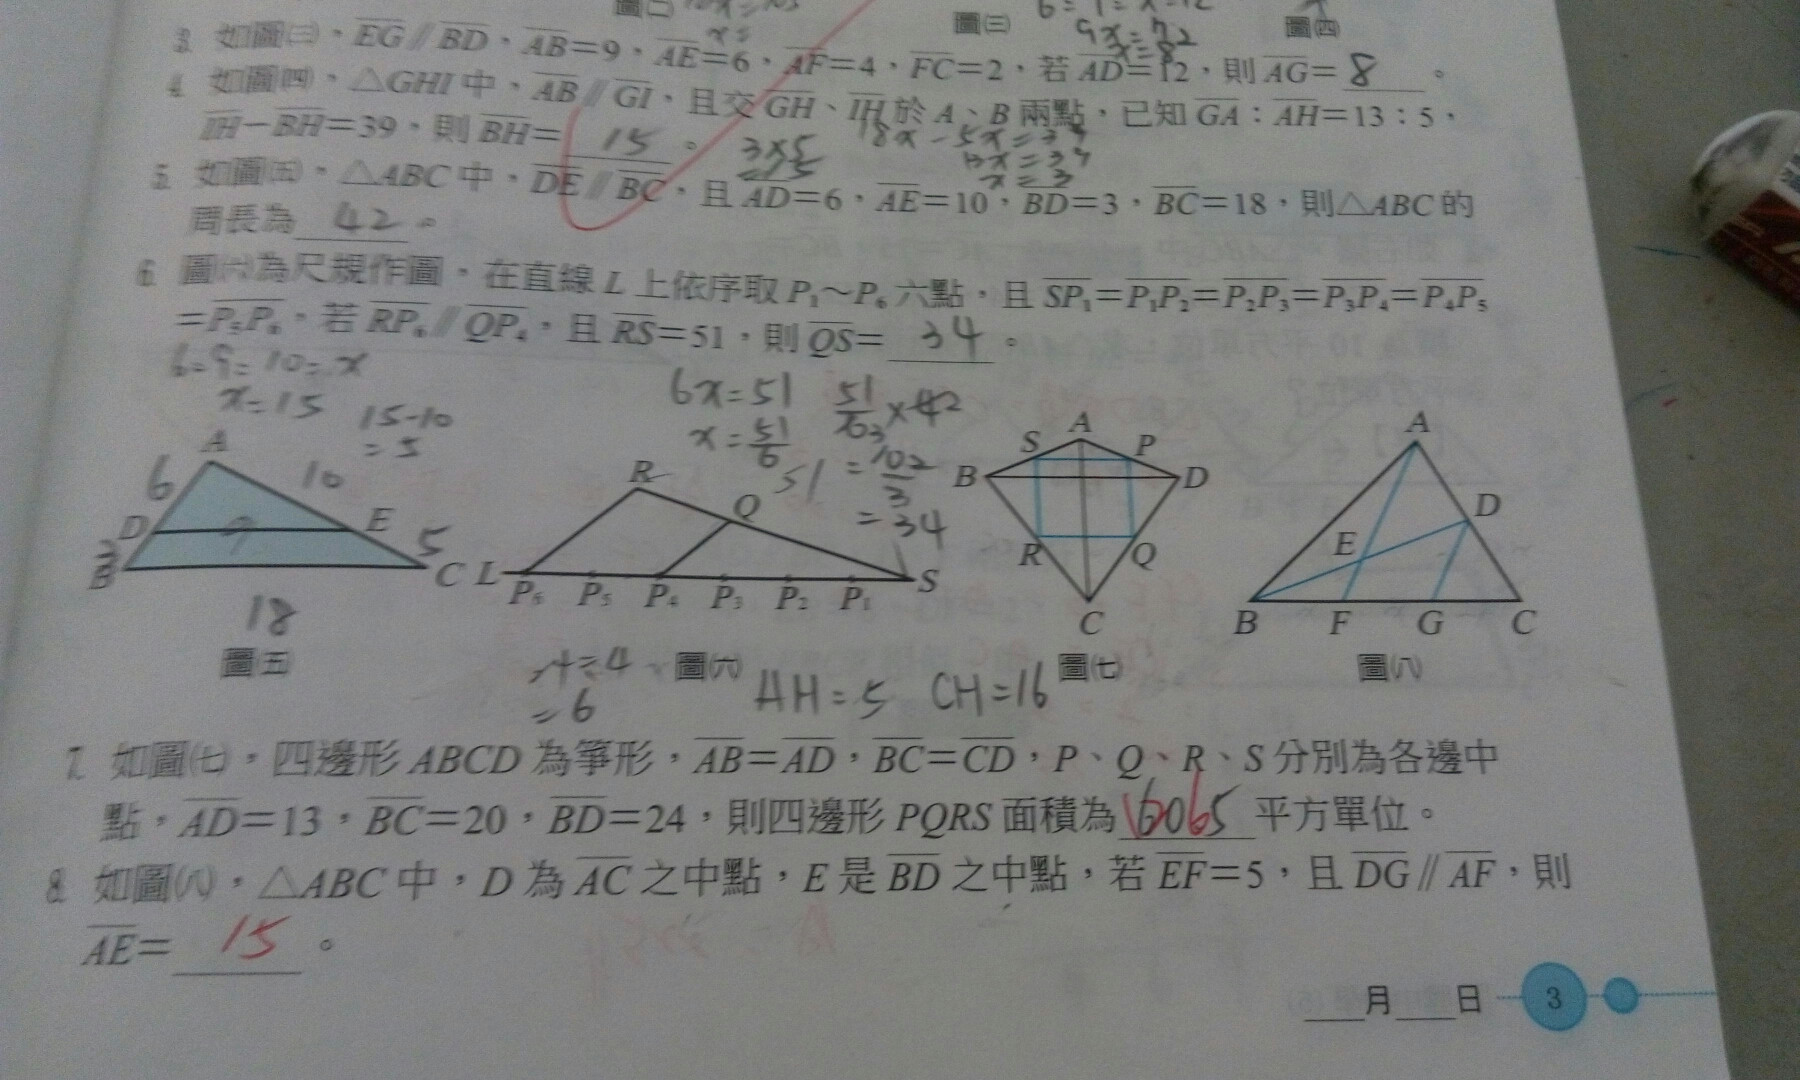 圖㈡ 10x=105
x=
圖㈢
9x=72
x=8
圖㈣
3. 如圖㈢，EG∥BD，AB=9，AE=6，AF=4，FC=2，若AD=12，則AG=8。
4. 如圖㈣，△GHI中，AB∥GI，且交GH、IH於A、B兩點，已知GA：AH=13：5，
IH－BH=39，則BH=15。
3×5
=15
18x-5x=39
13x=39
x=3
5. 如圖㈤，△ABC中，DE∥BC，且AD=6，AE=10，BD=3，BC=18，則△ABC的
周長為42。
6. 圖㈥為尺規作圖，在直線L上依序取P₁～P₆六點，且SP₁=P₁P₂=P₂P₃=P₃P₄=P₄P₅
=P₅P₆，若RP₆∥QP₄，且RS=51，則QS=34。
6=9=10=x
x=15 15-10
=5
6x=51
x=51/6
51/63×42
=102/3
=34
A
6 10
D 9 E
3 5
B C
18
圖㈤
R
Q 51
L P₆ P₅ P₄ P₃ P₂ P₁ S
圖㈥
=6
A
S P
B D
R Q
C
圖㈦
A
D
E
B F G C
圖㈧
AH=5 CH=16
7. 如圖㈦，四邊形ABCD為箏形，AB=AD，BC=CD，P、Q、R、S分別為各邊中
點，AD=13，BC=20，BD=24，則四邊形PQRS面積為平方單位。
8. 如圖㈧，△ABC中，D為AC之中點，E是BD之中點，若EF=5，且DG∥AF，則
AE=15。
月 日 3